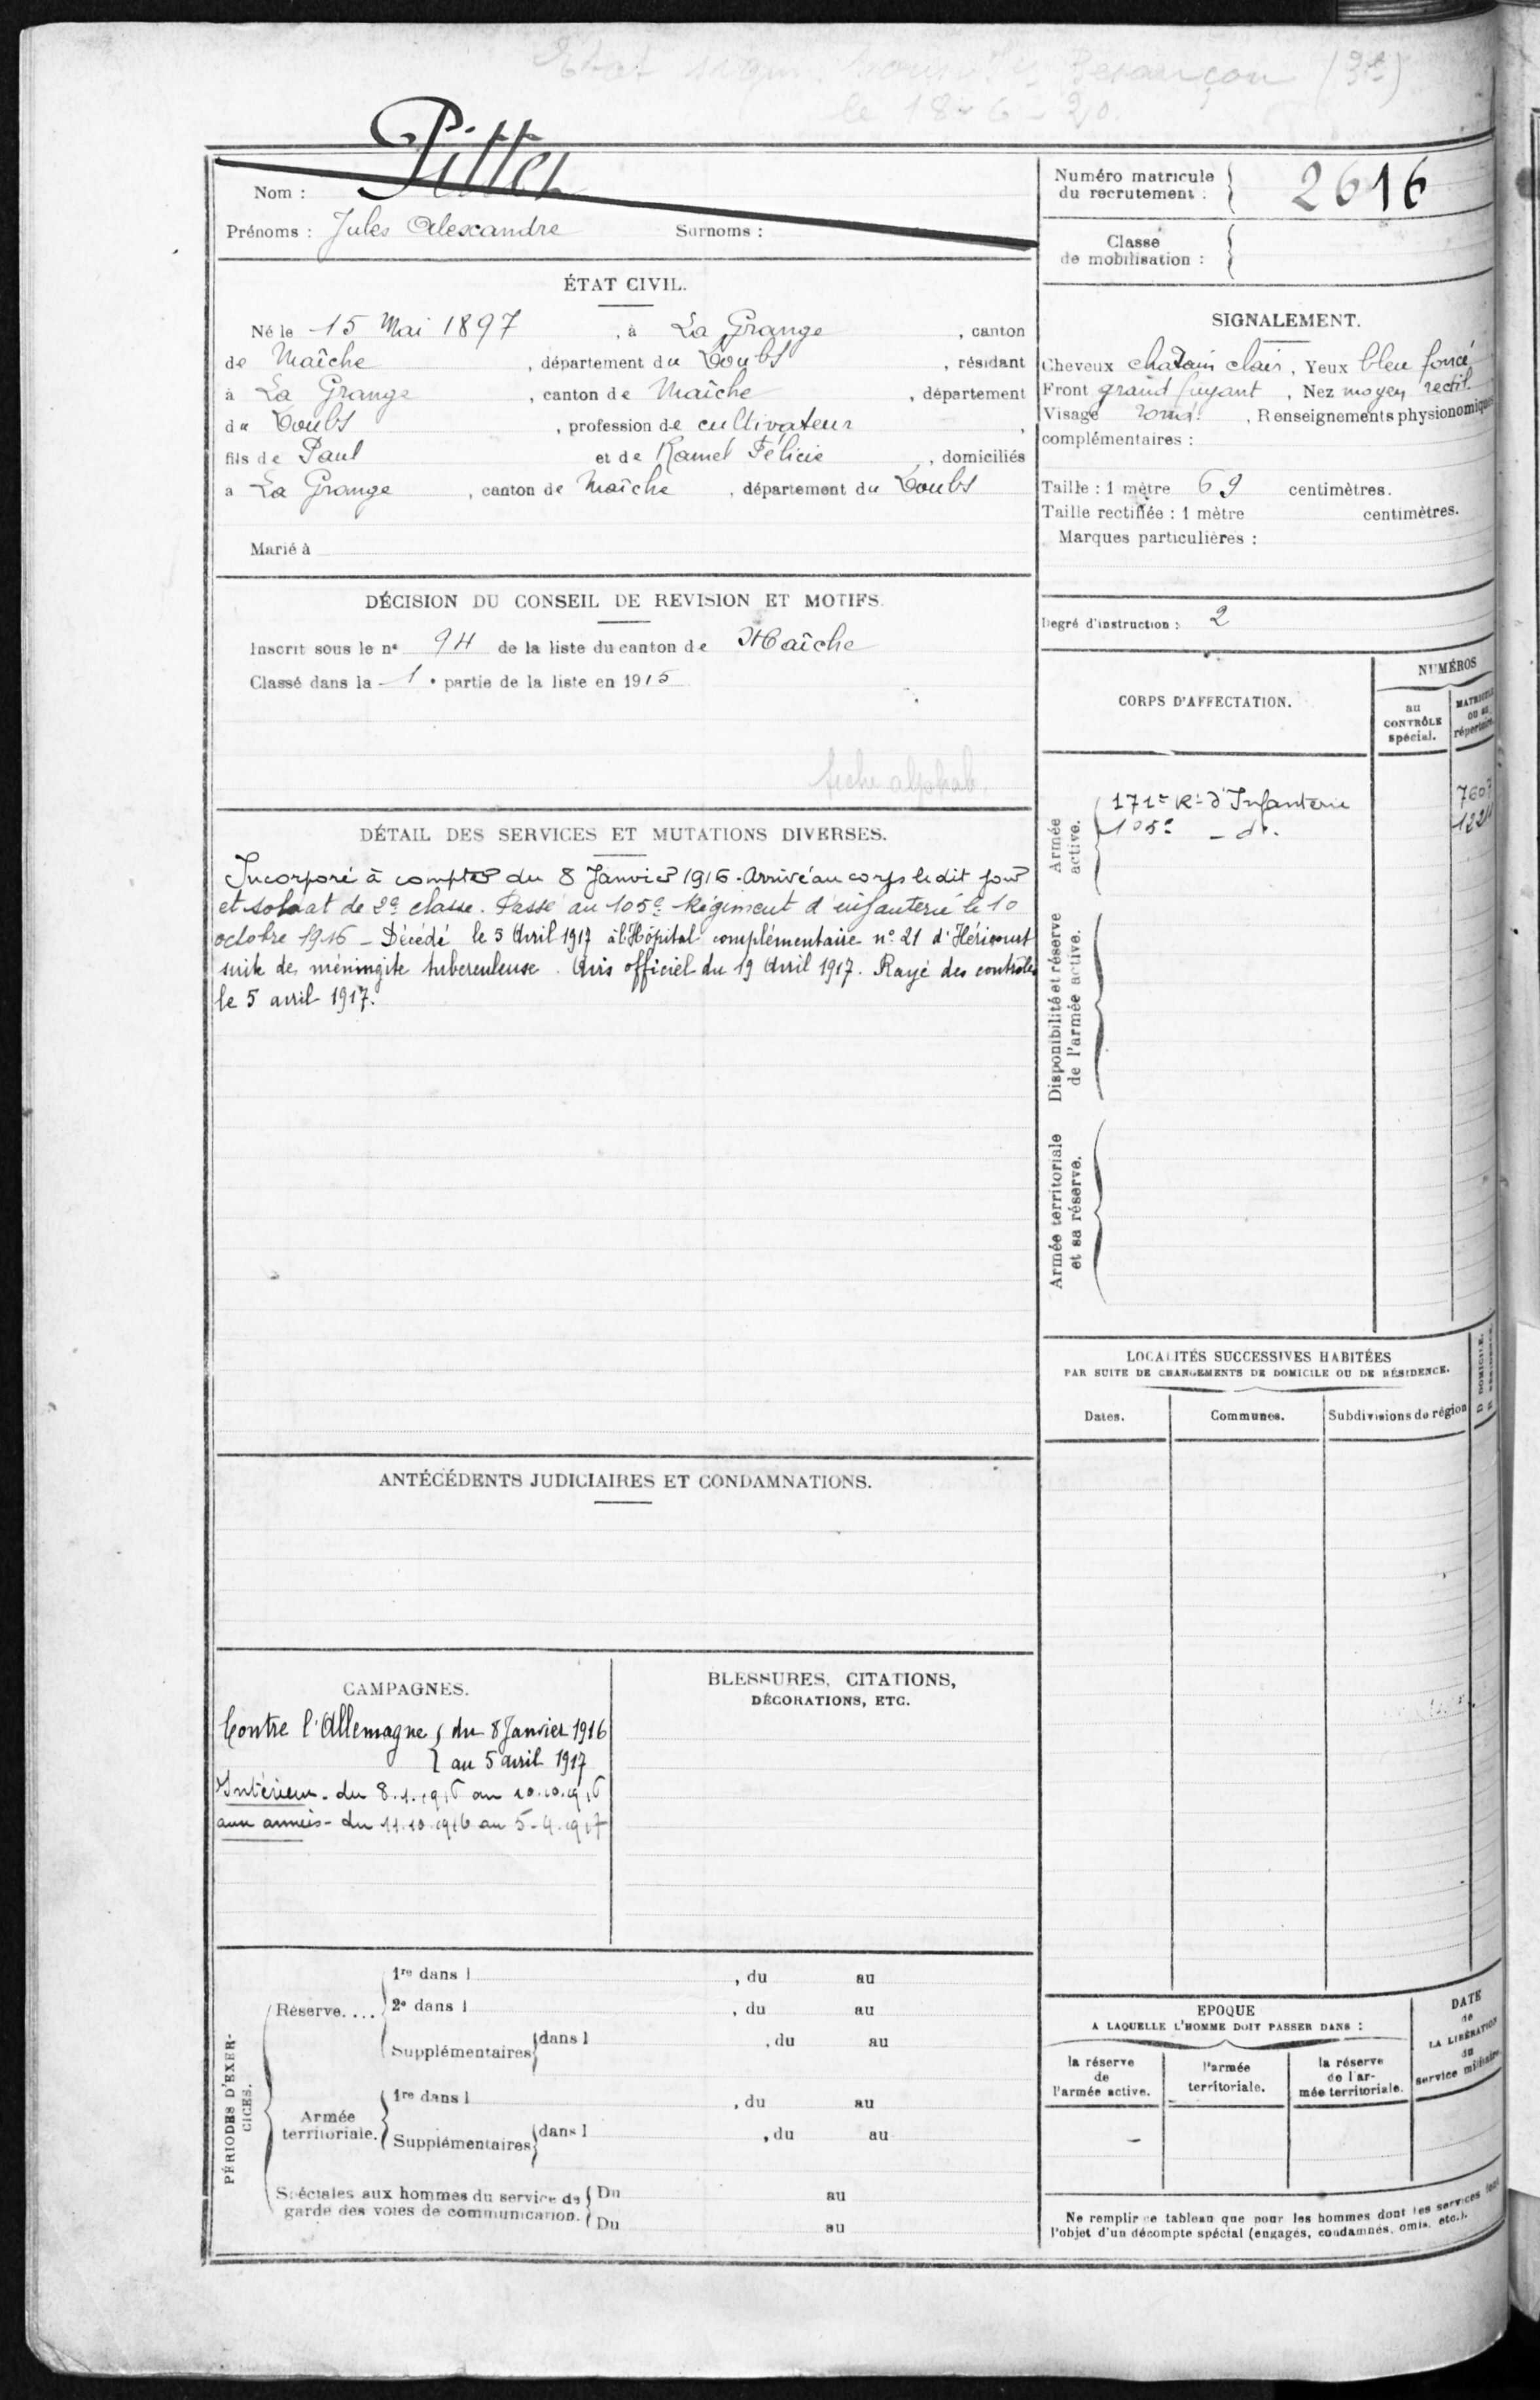 Etat sign. Besançon
le 18-6-20.
Nom : Pitter
Prénoms : Jules Alexandre Surnoms :
Numéro matricule du recrutement : 2616
Classe de mobilisation :
ÉTAT CIVIL.
Né le 15 Mai 1897, à La Grange, canton
de Maîche, département du Doubs, résidant
à La Grange, canton de Maîche, département
du Doubs, profession de cultivateur,
fils de Paul et de Ramel Félicie, domiciliés
à La Grange, canton de Maîche, département du Doubs
Marié à
SIGNALEMENT.
Cheveux chatain clair, Yeux bleu foncé
Front grand fuyant, Nez moyen rectil.
Visage rond., Renseignements physionomiques
complémentaires :
Taille : 1 mètre 69 centimètres.
Taille rectifiée : 1 mètre centimètres.
Marques particulières :
Degré d'instruction : 2
DÉCISION DU CONSEIL DE REVISION ET MOTIFS.
Inscrit sous le n° 94 de la liste du canton de Maîche
Classé dans la 1e partie de la liste en 1915
fiche alphab.
DÉTAIL DES SERVICES ET MUTATIONS DIVERSES.
Incorporé à compter du 8 Janvier 1916. Arrivé au corps le dit jour
et soldat de 2e classe. Passé au 105e Régiment d'infanterie le 10
octobre 1916 - Décédé le 5 Avril 1917 à l'Hôpital complémentaire n° 21 d'Héricourt
suite de méningite tuberculeuse. Avis officiel du 19 Avril 1917. Rayé des contrôles
le 5 avril 1917.
CORPS D'AFFECTATION.
NUMÉROS
au CONTRÔLE spécial.
MATRICULE ou au répertoire
Armée active.
171e Rt d'Infanterie 7607
105e - do.
Disponibilité et réserve de l'armée active.
Armée territoriale et sa réserve.
LOCALITÉS SUCCESSIVES HABITÉES
PAR SUITE DE CHANGEMENTS DE DOMICILE OU DE RÉSIDENCE.
Dates. Communes. Subdivisions de région
D DOMICILE.
R RÉSIDENCE.
ANTÉCÉDENTS JUDICIAIRES ET CONDAMNATIONS.
CAMPAGNES.
Contre l'Allemagne { du 8 Janvier 1916
{ au 5 avril 1917
Intérieur - du 8.1.1916 au 10.10.1916
aux armées - du 11.10.1916 au 5-4-1917
BLESSURES, CITATIONS,
DÉCORATIONS, ETC.
PÉRIODES D'EXERCICES.
Réserve....
1re dans l , du au
2e dans l , du au
Supplémentaires dans l , du au
Armée territoriale.
1re dans l , du au
Supplémentaires dans l , du au
Spéciales aux hommes du service de
garde des voies de communication.
Du au
Du au
EPOQUE
A LAQUELLE L'HOMME DOIT PASSER DANS :
DATE de LA LIBÉRATION du service militaire
la réserve de l'armée active.
l'armée territoriale.
la réserve de l'armée territoriale.
-
Ne remplir ce tableau que pour les hommes dont les services font
l'objet d'un décompte spécial (engagés, condamnés, omis, etc.).